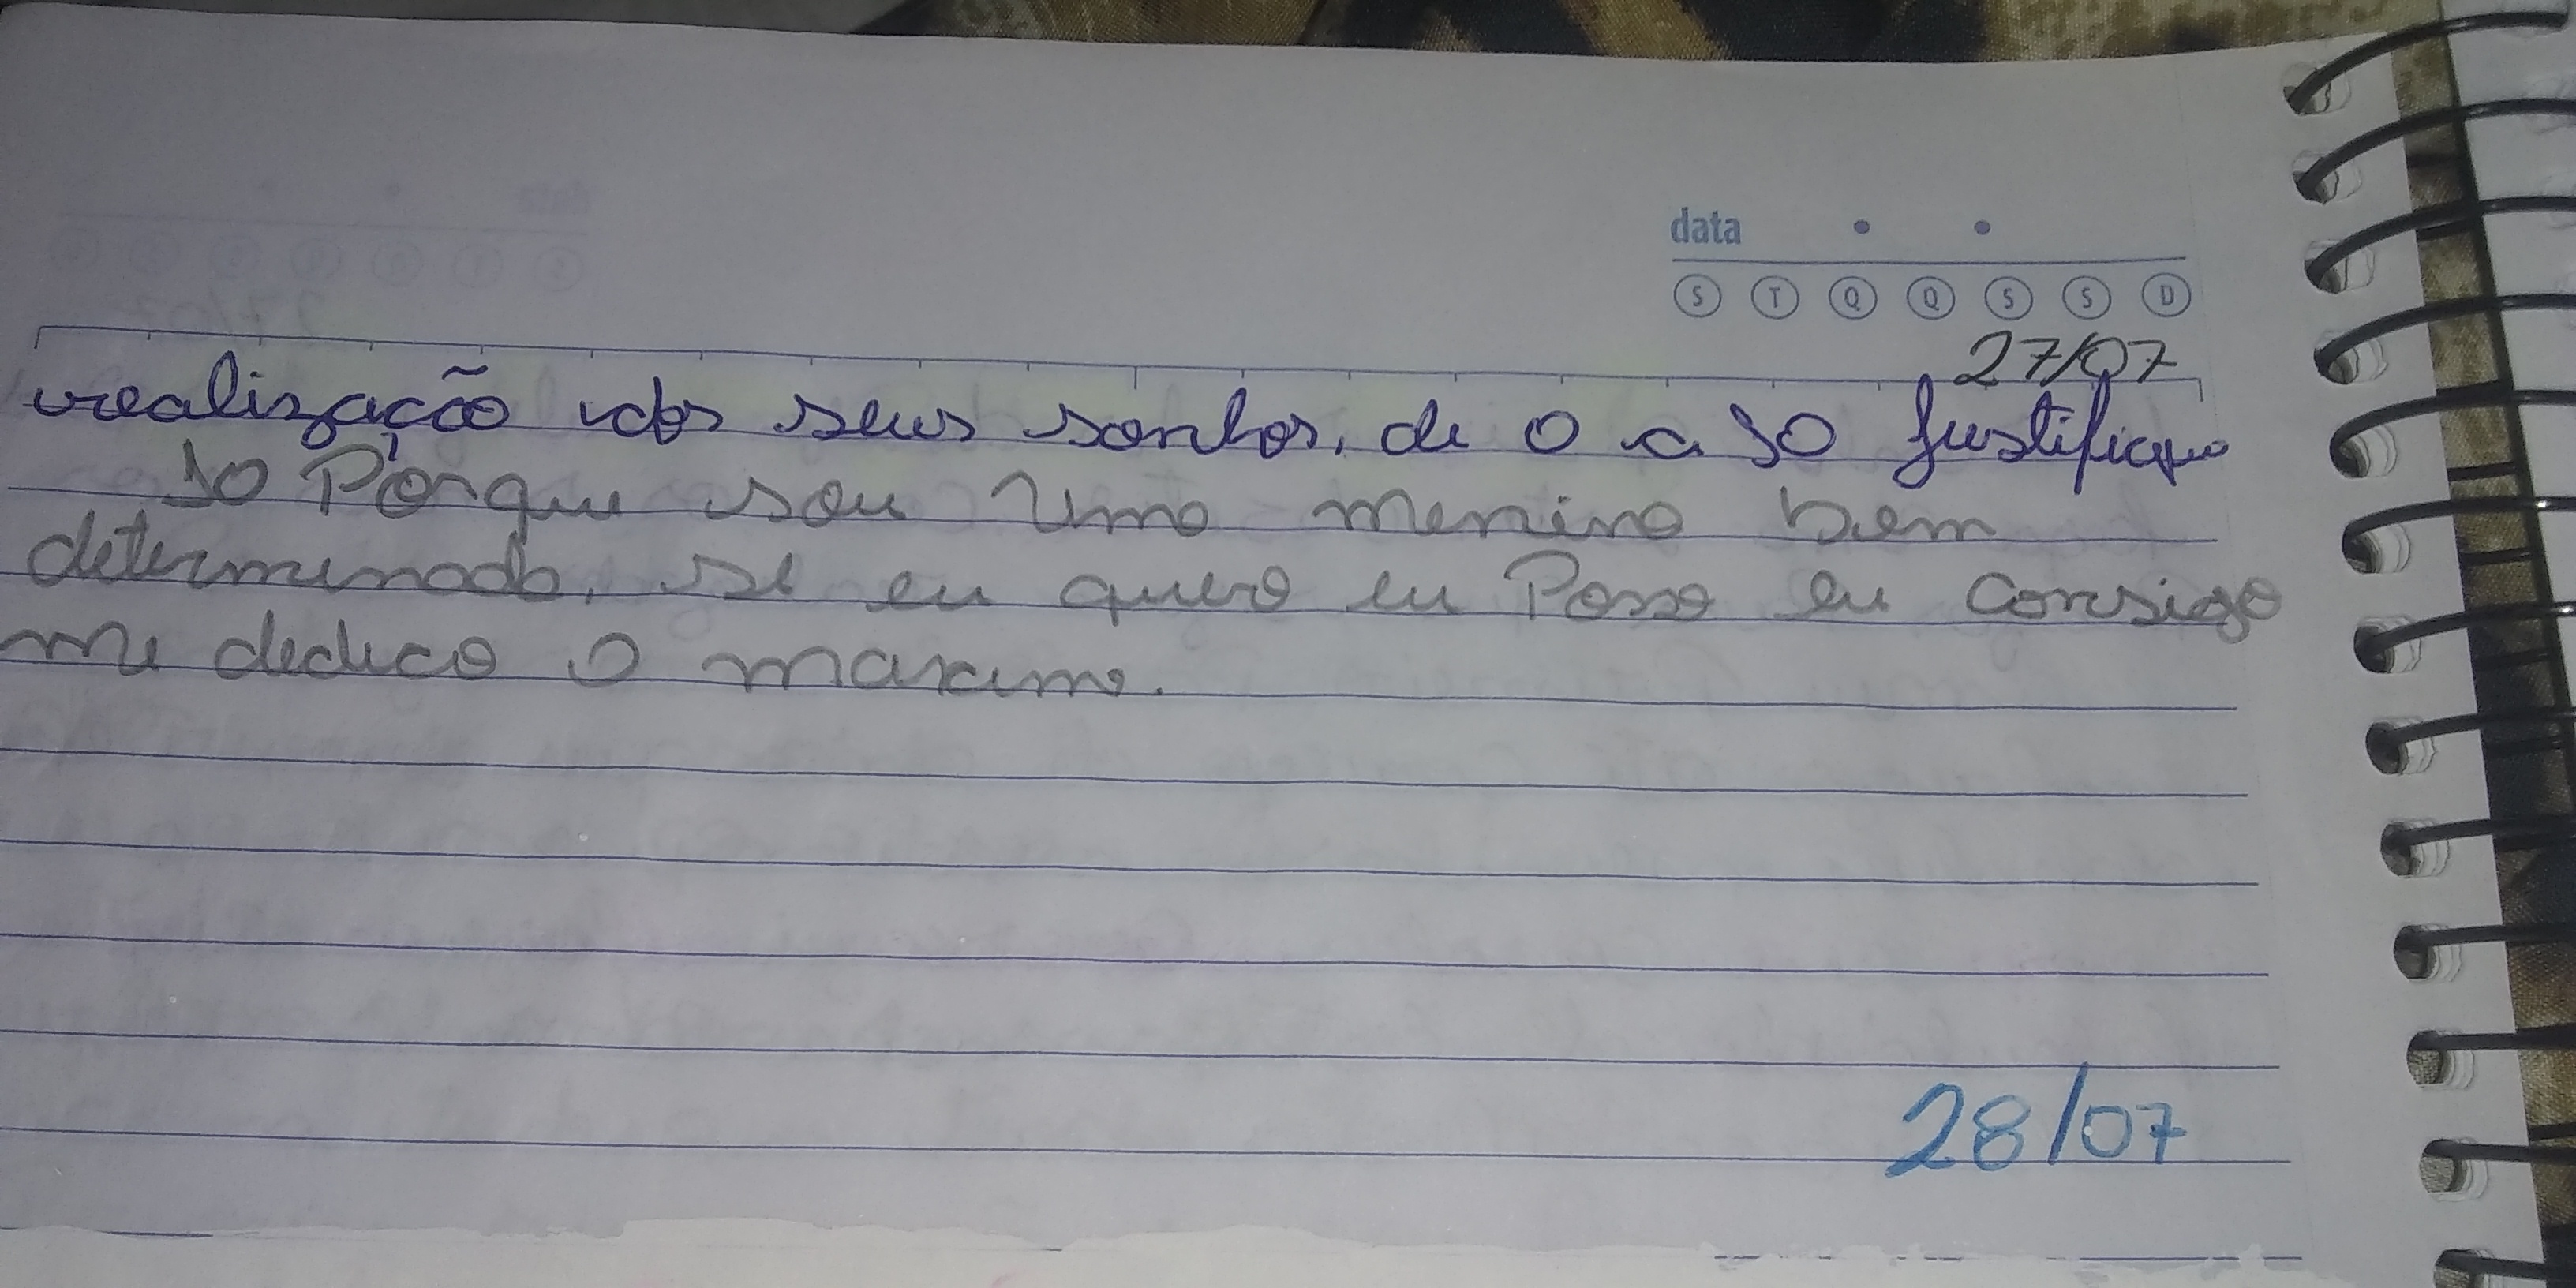 data • •
S T Q Q S S D
27/07
realização dos seus sonhos, de 0 a 10 Justifique
10 Porque sou uma menina bem
determinada, se eu quero eu Posso eu consigo
me dedico o maximo.
28/07